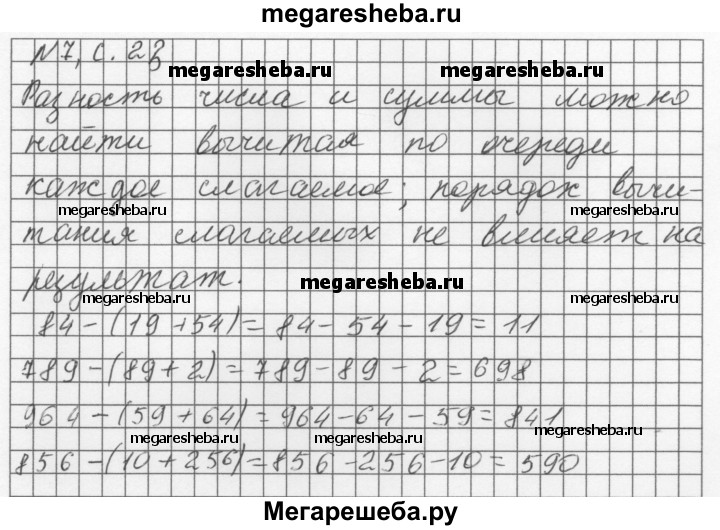 megaresheba.ru
№7, с. 23
megaresheba.ru megaresheba.ru
Разность числа и суммы можно
найти вычитая по очереди
каждое слагаемое; порядок вычи-
megaresheba.ru megaresheba.ru
тания слагаемых не влияет на
результат. megaresheba.ru
megaresheba.ru megaresheba.ru
84-(19+54)=84-54-19=11
789-(89+2)=789-89-2=698
964-(59+64)=964-64-59=841
megaresheba.ru megaresheba.ru megaresheba.ru
856-(10+256)=856-256-10=590
Мегарешеба.ру